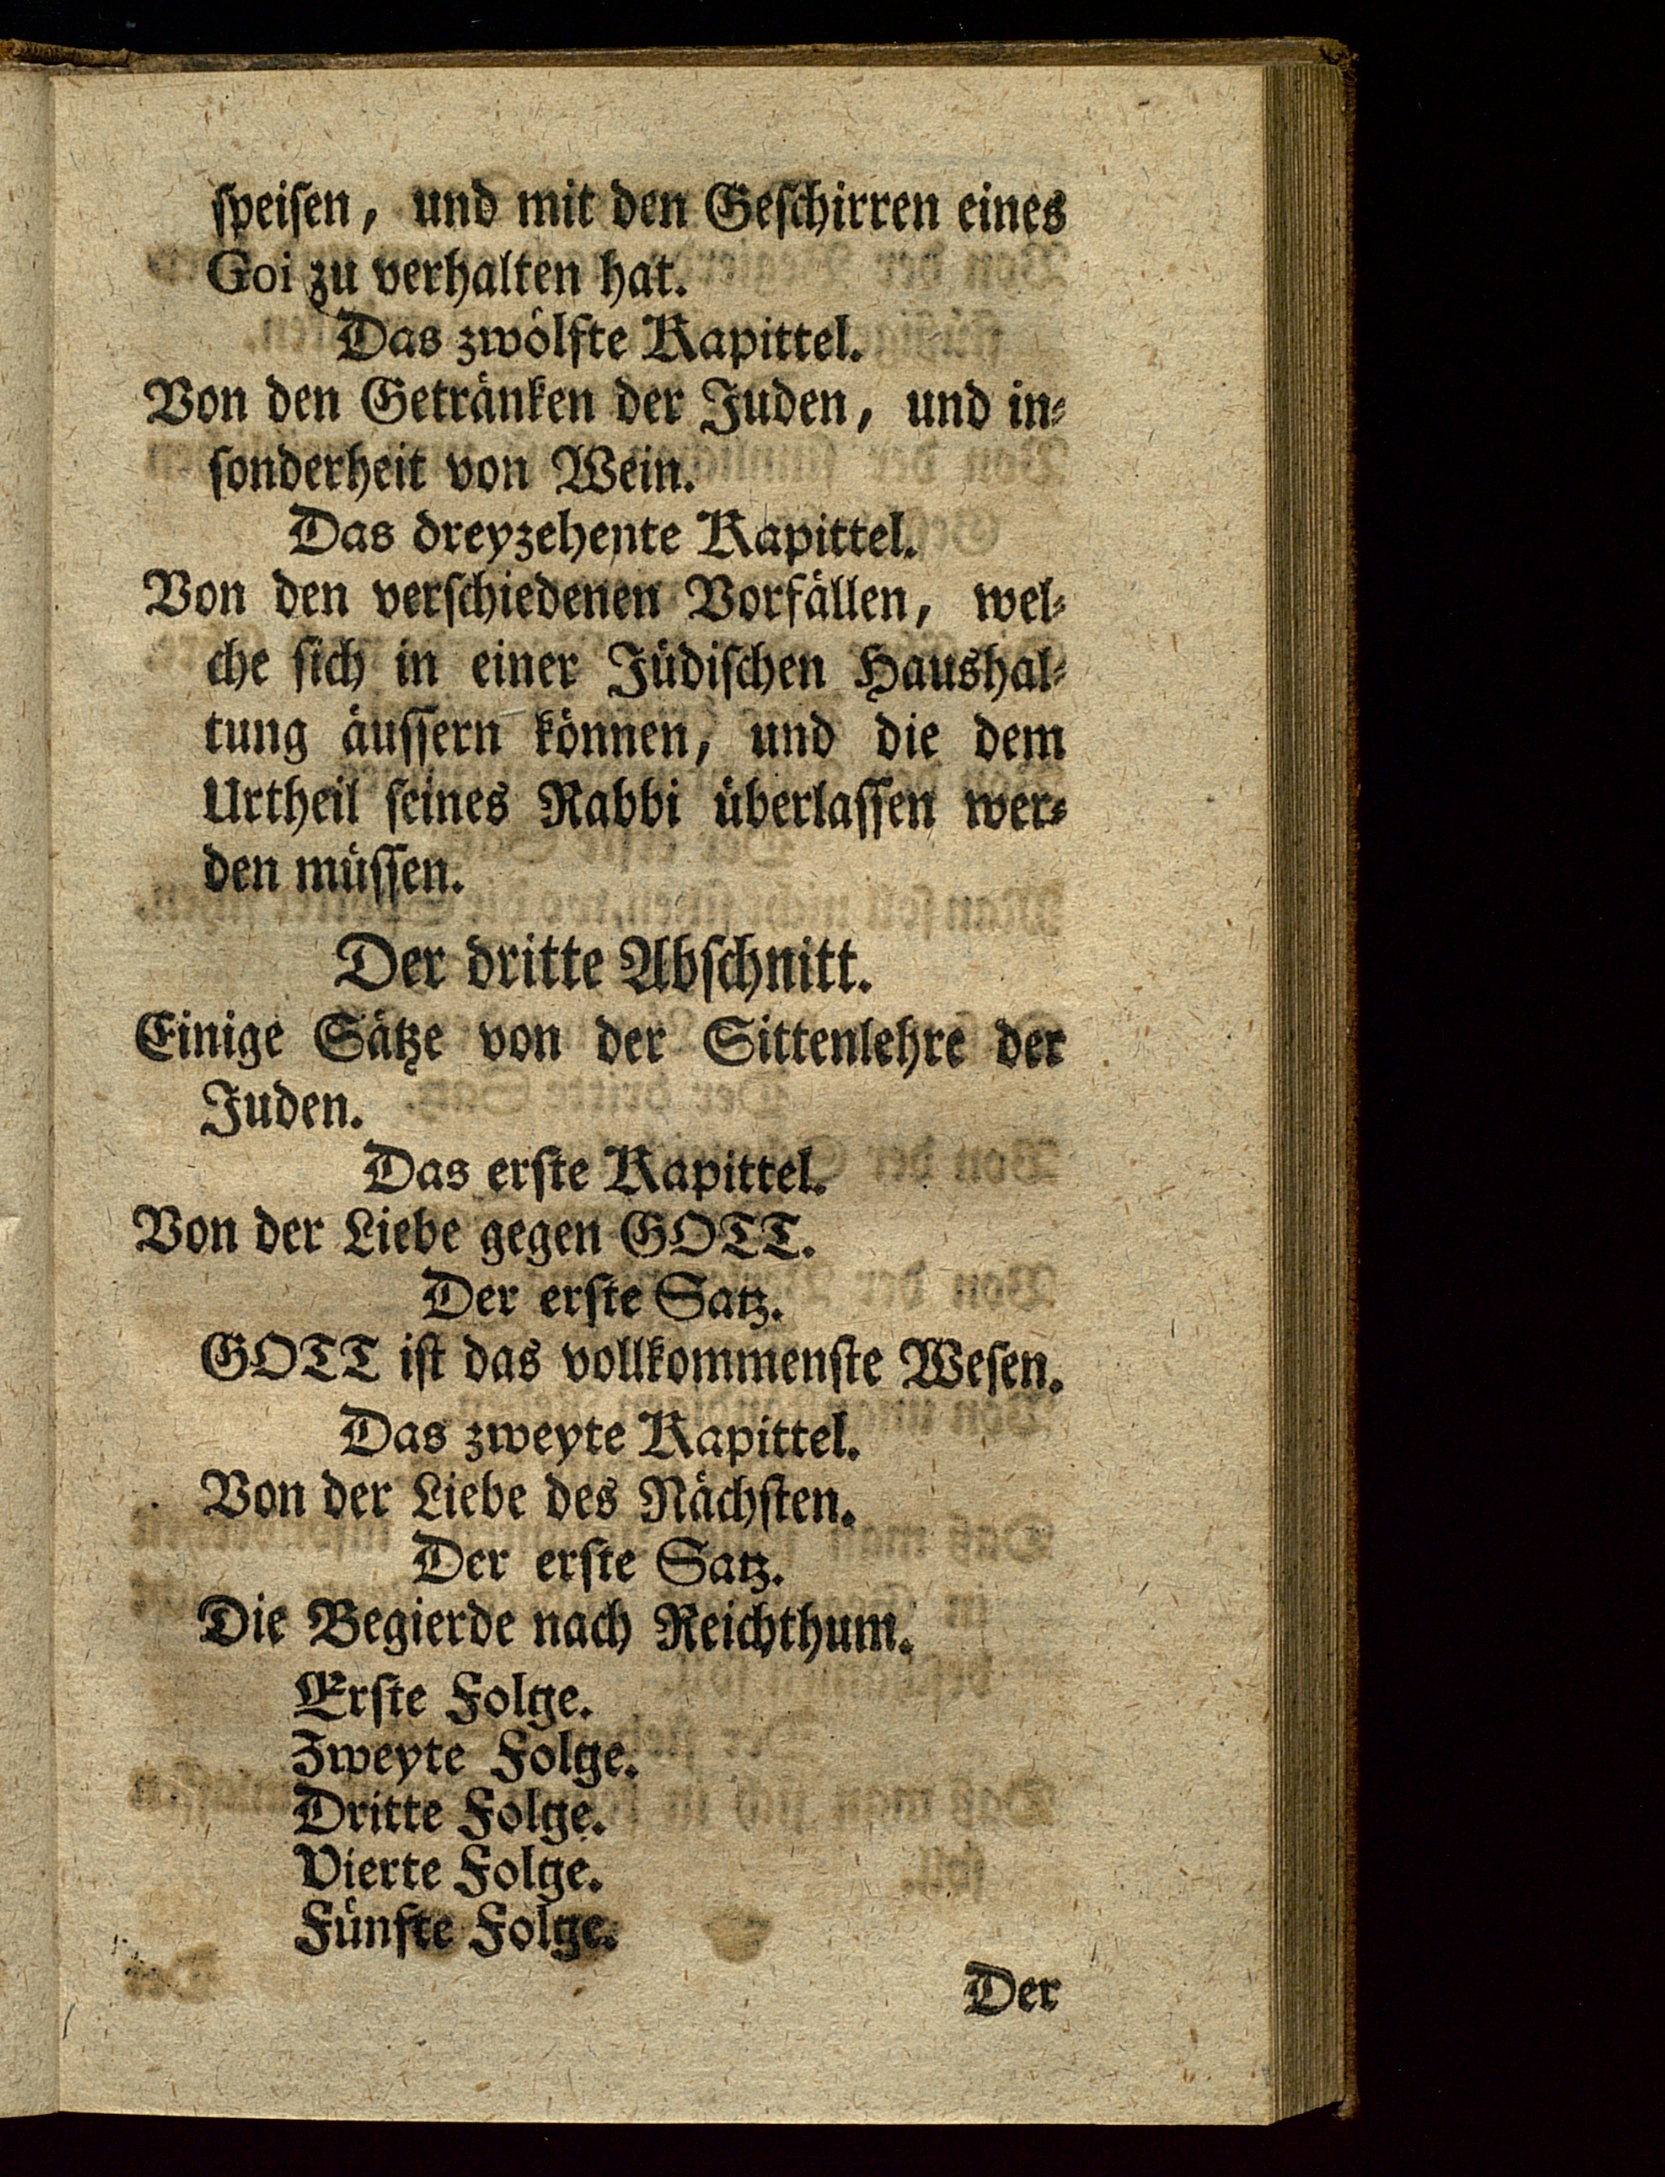 ſpeiſen, und mit den Geſchirren eines
Goi zu verhalten hat.
Das zwölfte Kapittel.
Von den Getränken der Juden, und in⸗
ſonderheit von Wein.
Das dreyzehente Kapittel.
Von den verſchiedenen Vorfällen, wel⸗
che ſich in einer Jüdiſchen Haushal⸗
tung äuſſern können, und die dem
Urtheil ſeines Rabbi überlaſſen wer⸗
den müſſen.
Der dritte Abſchnitt.
Einige Sätze von der Sittenlehre der
Juden.
Das erſte Kapittel.
Von der Liebe gegen GOTT.
Der erſte Satz.
GOTT iſt das vollkommenſte Weſen.
Das zweyte Kapittel.
Von der Liebe des Nächſten.
Der erſte Satz.
Die Begierde nach Reichthum.
Erſte Folge.
Zweyte Folge.
Dritte Folge.
Vierte Folge.
Fünfte Folge.
Der